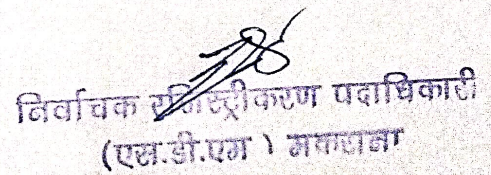 निर्वाचक रजिस्ट्रीकरण पदाधिकारी
(एस.डी.एम) मकराना